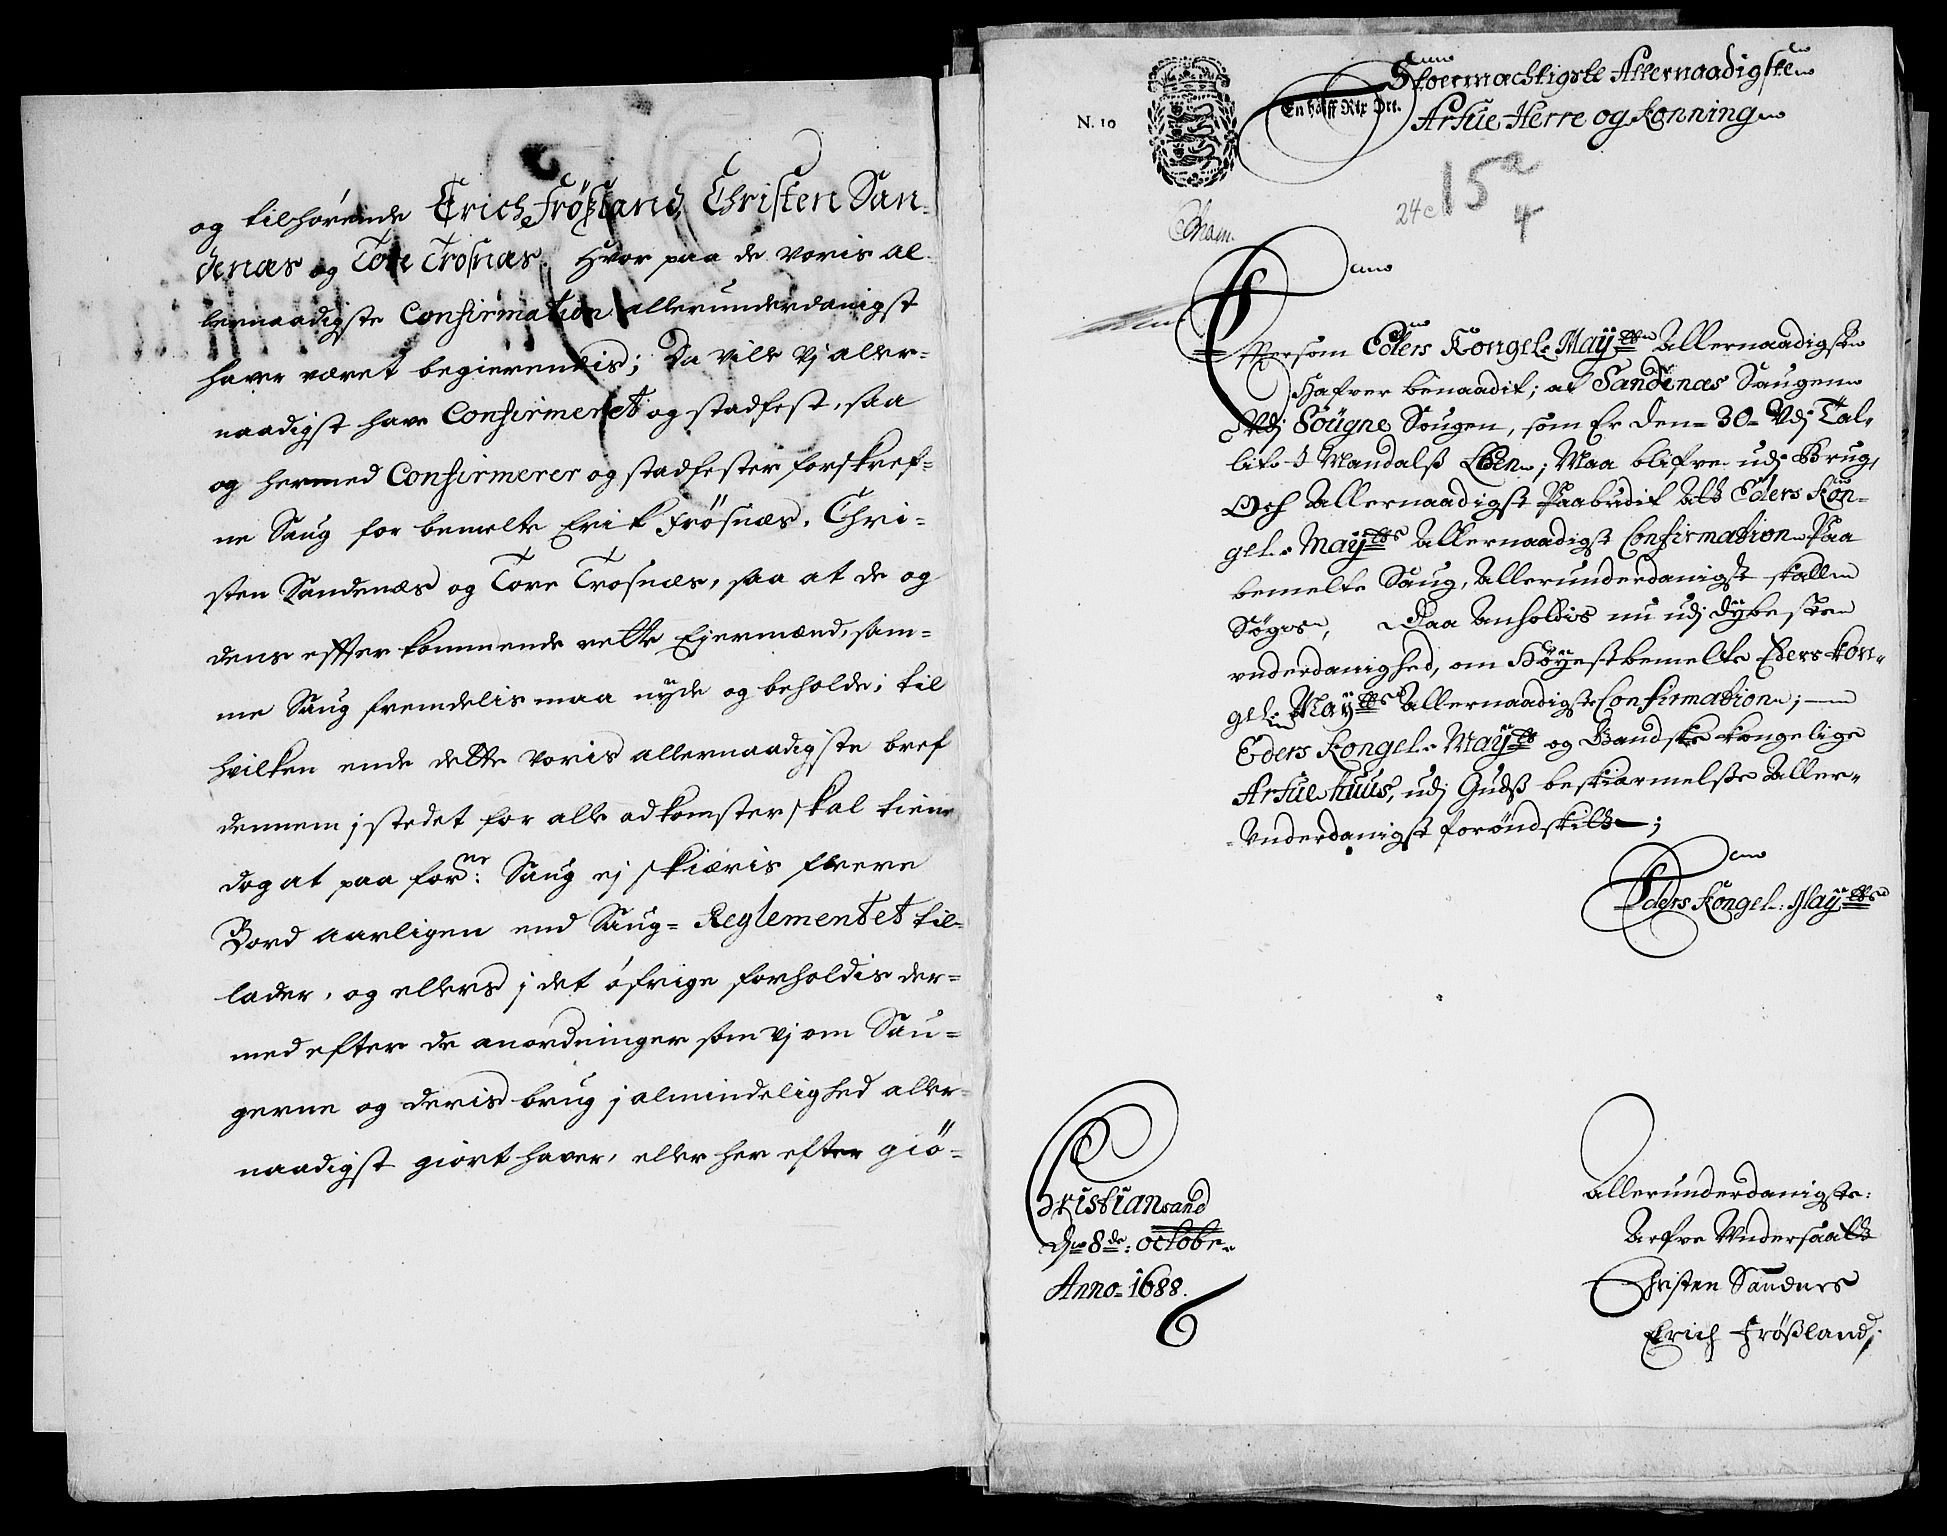 og tilhörende Erich Frößland, Christen San-
denæs og Tore Trosnæs. Hvor paa de voris al-
lernaadigste Confirmation allerunderdanigst
haver været begierendis; Da ville vj aller-
naadigst have Confirmeret og stadfest, saa
og hermed Confirmerer og stadfester forskref-
ne Saug for bemelte Erik Frösnæs, Chri-
sten Sandenæs og Tore Trosnæs, saa at de og
dens effter kommende rette Ejermænd, sam-
me Saug fremdelis maa nyde og beholde; til
hvilken ende dette voris allernaadigste bref
dennem j stedet for alle adkomster skal tiene
dog at paa forne: Saug ej skiæris flere
Bord aarligen end Saug-Reglementet til-
lader, og ellers j det öfrige forholdis der-
med efter de anordninger som vj om Sau-
gerne og deris brug j almindelighed aller-
naadigst giort haver, eller her efter giö-
N. 10
En halff Rix Ort.
Stoermachtigste Allernaadigste
Arfue Herre og Konning
15 a
24c
4
Efftersom Eders Kongel. Maytt Allernaadigste
Hafver benaadit; at Sandenæs Saugen
Udj Söügne Sougen, som Er den 30 Udj Tal,
lit I Mandalß Lehn; Maa blifve udj Brug,
Och Allernaadigst Paabudit Att Eders Kon-
gel. Maytts Allernaadigst Confirmation Paa
bemelte Saug, Allerunderdanigst skulle
Söges, Daa Anholdis nu udj dybeste
vnderdanighed, om Höyestbemelte Eders Kon-
gel. Maytts Allernaadigste Confirmation;
Eders Kongel. Maytt og Gandske Kongelige
Arfue huus, udj Gudß beskiærmelße Aller-
Vnderdanigst forönd skilt;
Eders Kongel: Maytts
Christiansand
Den 8de: octobr.
Anno 1688.
Allerunderdanigste:
Arfve Undersaatt
Christen Sandnes
Erich Frößland